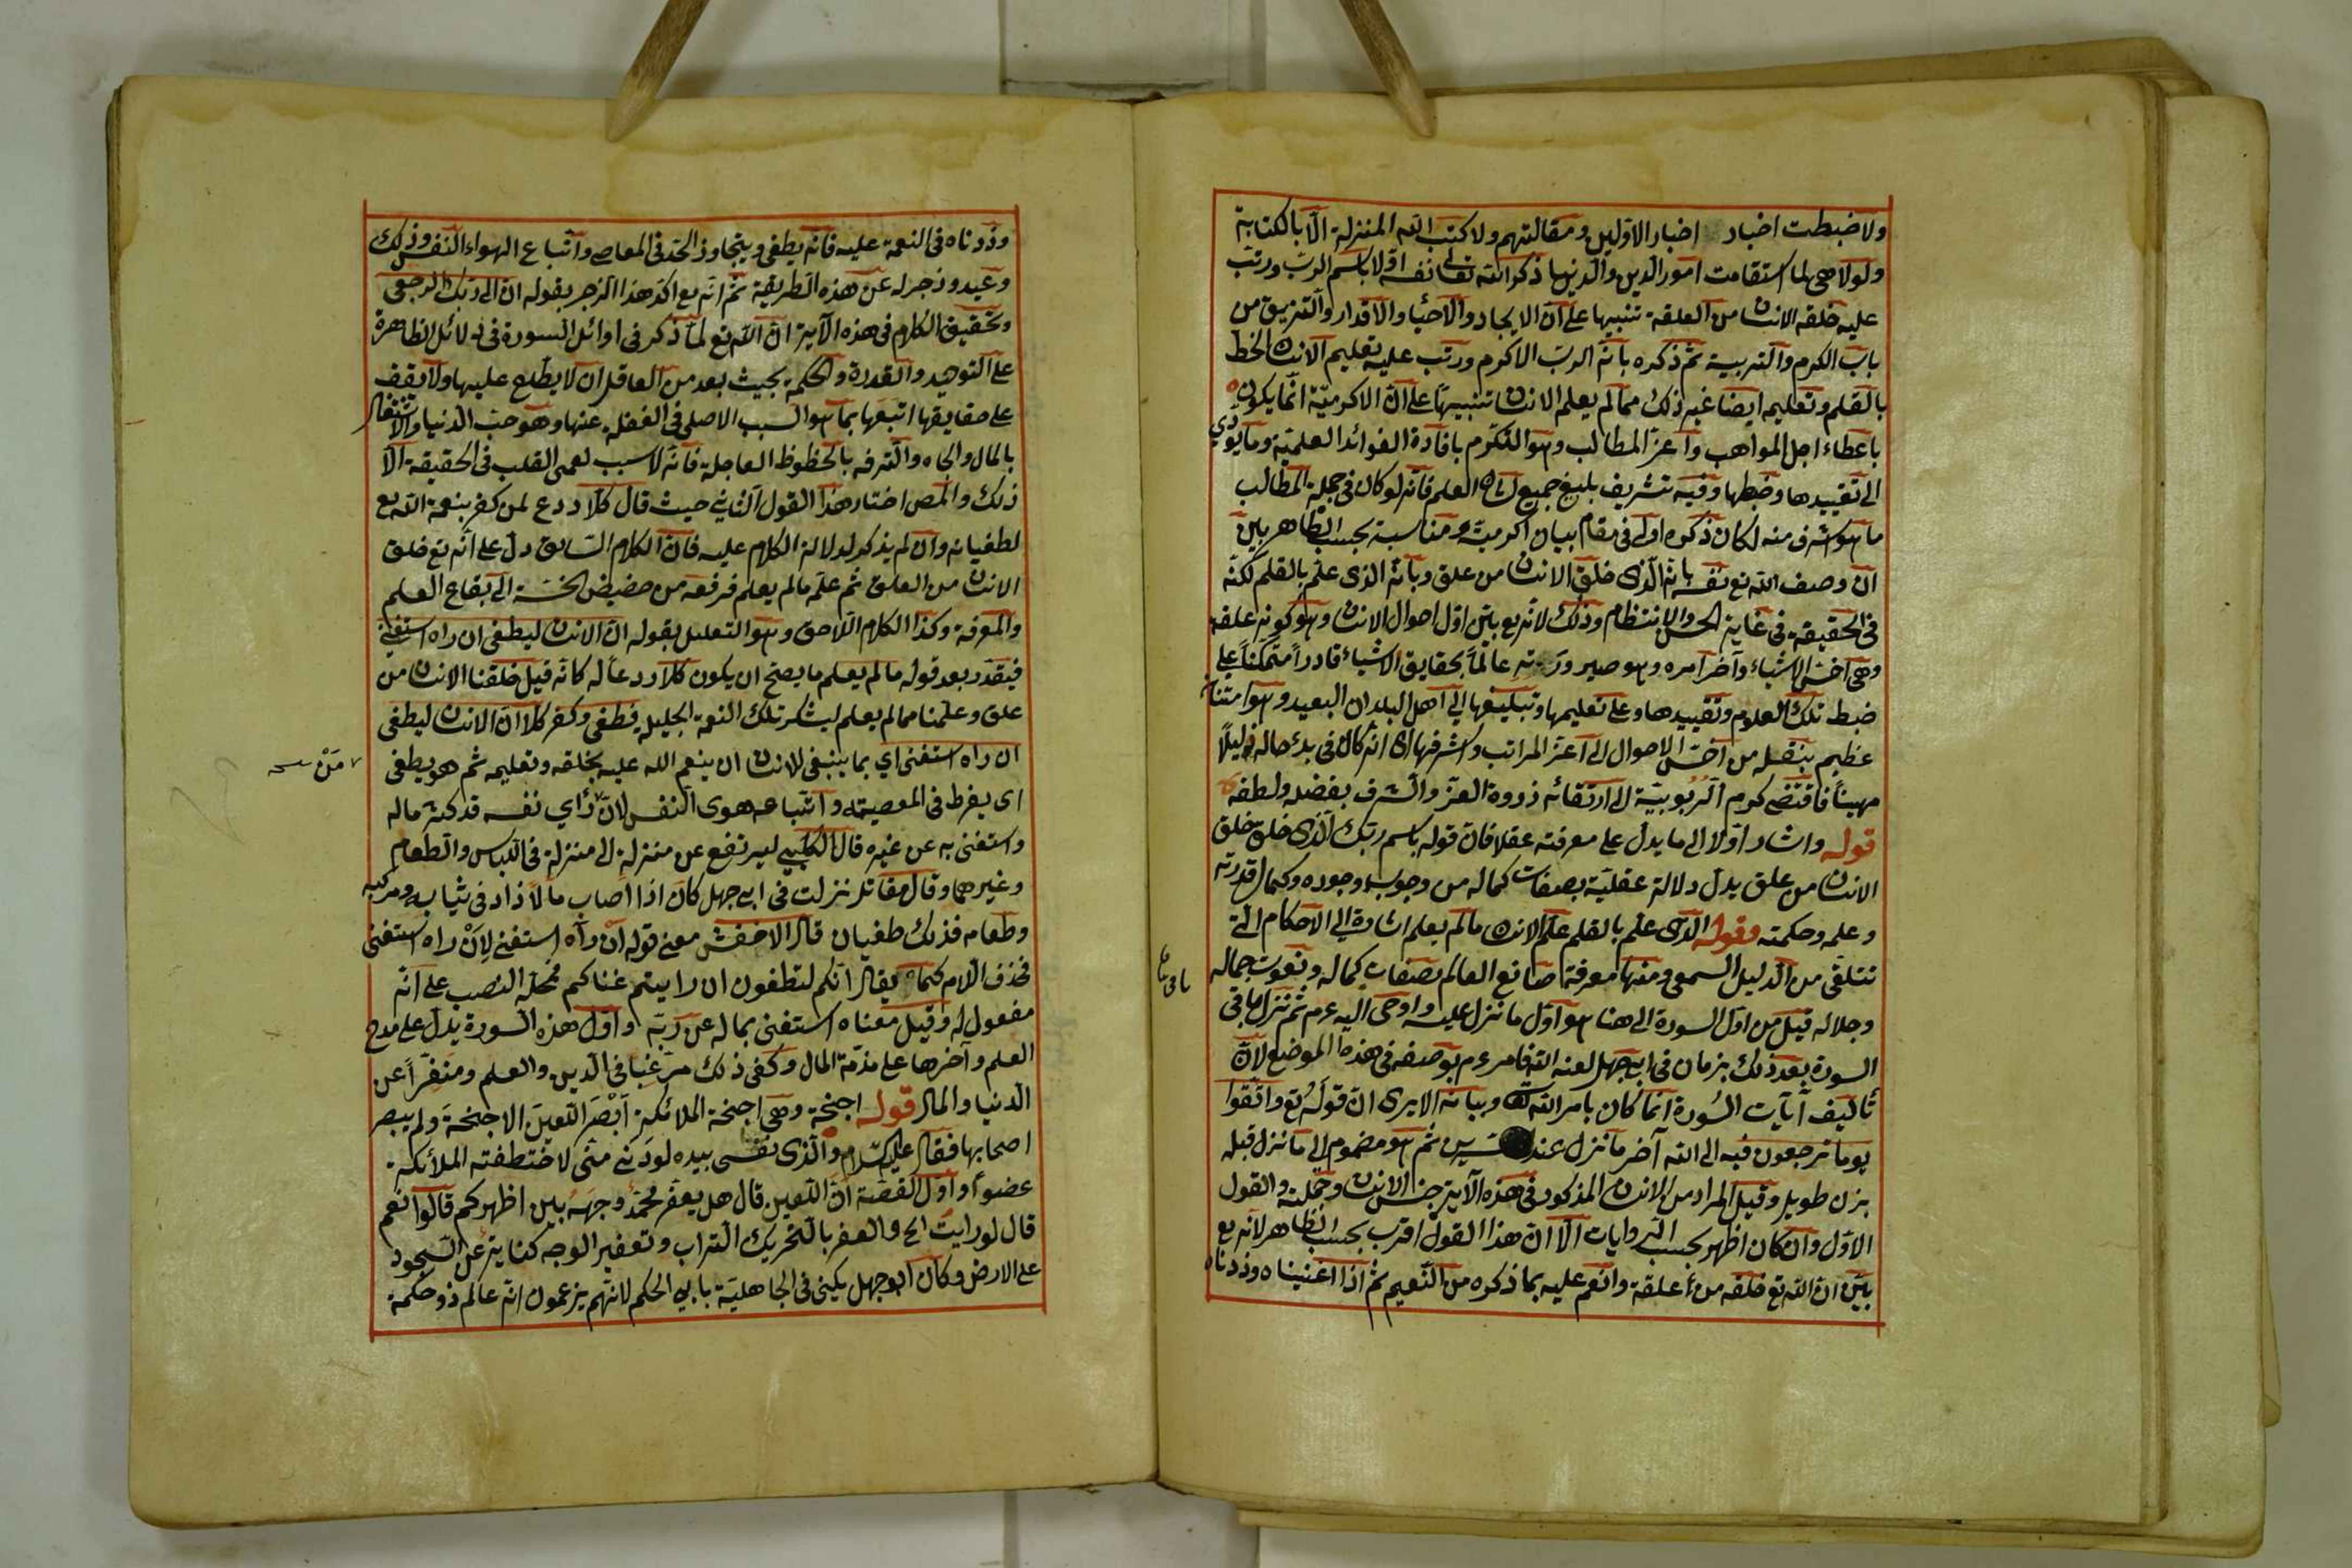 ولا ضبطت اخبار اخبار الاولين ومقالتهم ولا كتب الله المنزلة الّا بالكتابة
ولولا هى لما استقامت امور الدين والدنيا ذكر الله تعالى نفسه اوّلا باسم الربّ ورتّب
عليه خلقه الانسان من العلقة تنبيها على انّ الايجاد والاحياء والاقدار والتزيق من
باب الكرم والتربية ثمّ ذكره بانّه الربّ الاكرم ورتّب عليه تعليم الانسان الخط
بالقلم وتعليمه ايضا غير ذلك ممّا لم يعلم الانسان تنبيهاً على انّ الاكرميّة انّما يكون
باعطاء اجل المواهب واعزّ المطالب وهو التكرّم بافادة الفوائد العلميّة وما يؤدي
الى تقييدها وضبطها وفيه تشريف بليغ جميع العلم فانّه لو كان فى جملة المطالب
ما هو اشرف منه لكان ذكره اولى فى مقام بيان اكرميّته ومناسبة بحسب الظاهر بين
ان وصف الله تع نفسه بانّه الّذى خلق الانسان من علق وبانّه الذى علّم بالقلم لكنّه
فى الحقيقة فى غاية الحسن والانتظام وذلك لانّه تع بيّن اوّل احوال الانسان وهو كونه علقة
وهى اخسّ الاشياء وآخر امره وهو صيرورته عالماً بحقايق الاشياء قادراً متمكّناً على
ضبط تلك العلوم وتقييدها وعلى تعليمها وتبليغها الى اهل البلدان البعيد وهو امتنان
عظيم بنقله من اخسّ الاحوال الى اعزّ المراتب واشرفها اى انّه كان فى بدء حاله ذليلاً
مهيناً فاقتضى كرم الربوبيّة الى ارتقائه ذروة العزّ والشرف بفضله ولطفه
قوله واشار اوّلا الى ما يدلّ على معرفته عقلا فانّ قوله باسم ربّك الّذى خلق خلق
الانسان من علق يدلّ دلالة عقليّة بصفات كماله من وجوب وجوده وكمال قدرته
وعلمه وحكمته وقوله الذى علّم بالقلم علّم الانسان ما لم يعلم اشارة الى الاحكام التى
تتلقّى من الدليل السمعى ومنها معرفة صانع العالم بصفات كماله ونعوت جماله
وجلاله قيل من اوّل السورة الى هنا هو اوّل ما نزل عليه واوحى اليه عم ثمّ نزل باقى
باقى
السورة بعد ذلك بزمان فى ابى جهل لعنه الله فامر عم بوضعه فى هذا الموضع لانّ
تأليف آيات السّورة انّما كان بامر الله وبيانه الا يرى انّ قوله تع واتّقوا
يوما ترجعون فيه الى الله آخر ما نزل عند ثمّ هو مضموم الى ما نزل قبله
بزمن طويل وقيل المراد من الانسان المذكور فى هذه الآية جنس الانسان وجملته والقول
الاوّل وان كان اظهر بحسب الروايات الّا انّ هذا القول اقرب بحسب الظاهر لانّه تع
بيّن انّ الله تع خلقه من علقة وانعم عليه بما ذكره من النّعيم ثمّ اذا اغنيناه وزدناه
وزدناه فى النعمة عليه فانّه يطغى ويتجاوز الحدّ فى المعاصى واتّباع الهواء النفس وذلك
وعيد وزجر له عن هذه الطريقة ثمّ انّه تع اكّد هذا الزجر بقوله انّ الى ربّك الرجعى
وتحقيق الكلام فى هذه الآية انّ الله تع لمّا ذكر فى اوائل السورة فى دلائل الظاهرة
على التوحيد والقدرة والحكمة بحيث بعد من العاقل ان لا يطّلع عليها ولا يقف
على حقايقها اتبعها بما هو السبب الاصلى فى الغفلة عنها وهو حبّ الدنيا والاشتغال
بالمال والجاه والترفه بالحظوظ العاجلة فانّه لا سبب لعمى القلب فى الحقيقة الّا
ذلك والمص اختار هذا القول الثانى حيث قال كلّا ردع لمن كفر بنعمة الله تع
لطغيانه وان لم يذكر لدلالة الكلام عليه فانّ الكلام السّابق دلّ على انّه تع خلق
الانسان من العلق ثمّ علّمه ما لم يعلم فرفعه من حضيض الخسّة الى بقاع العلم
والمعرفة وكذا الكلام اللّاحق وهو التعليل بقوله انّ الانسان ليطغى ان راه استغنى
فيقدّر بعد قوله ما لم يعلم ما يصحّ ان يكون كلّا ردعاً له كانّه قيل خلقنا الانسان من
علق وعلّمناه ما لم يعلم ليشكر تلك النعمة الجليلة فطغى وكفر كلّا انّ الانسان ليطغى
ان راه استغنى اي بما ينبغى للانسان ان ينعم الله عليه بخلقه وتعليمه ثم هو يطغى
مَنْ
اى يفرط فى المعصية واتّباعه هوى النفس لانّ رأي نفسه قد كثر ماله
واستغنى به عن غيره قال الكلبي ليرتفع عن منزلة الى منزلة فى اللباس والطعام
وغيرهما وقال مقاتل نزلت فى ابى جهل كان اذا اصاب مالاً زاد فى ثيابه ومركبه
وطعامه فذلك طغيان قال الاخفش معنى قوله ان رآه استغنى لِاَنْ راه استغنى
فحذف اللام كما يقال انّكم لتطغون ان رايتم غناكم فمحلّه النصب على انّه
مفعول له وقيل معناه استغنى بماله عن ربّه واوّل هذه السورة يدلّ على مدح
العلم وآخرها على مذمّة المال وكفى ذلك مرغّبا فى الدين والعلم ومنفّراً عن
الدنيا والمال قوله اجنحة وهى اجنحة الملائكة اَبْصَرَ اللّعينَ الاجنحةَ ولم يبصر
اصحابها فقال عليه السّلام والّذى نفسى بيده لو دنى منّى لاختطفته الملائكة
عضوا واوّل القصّة انّ اللّعين قال هل يعفّر محمّد وجهَه بين اظهركم قالوا نعم
قال لو رايت الخ والعفر بالتحريك التراب وتعفير الوجه كناية عن السّجود
على الارض وكان ابو جهل يكنى فى الجاهليّة بابي الحكم لانّهم يزعمون انّه عالم ذو حكمة